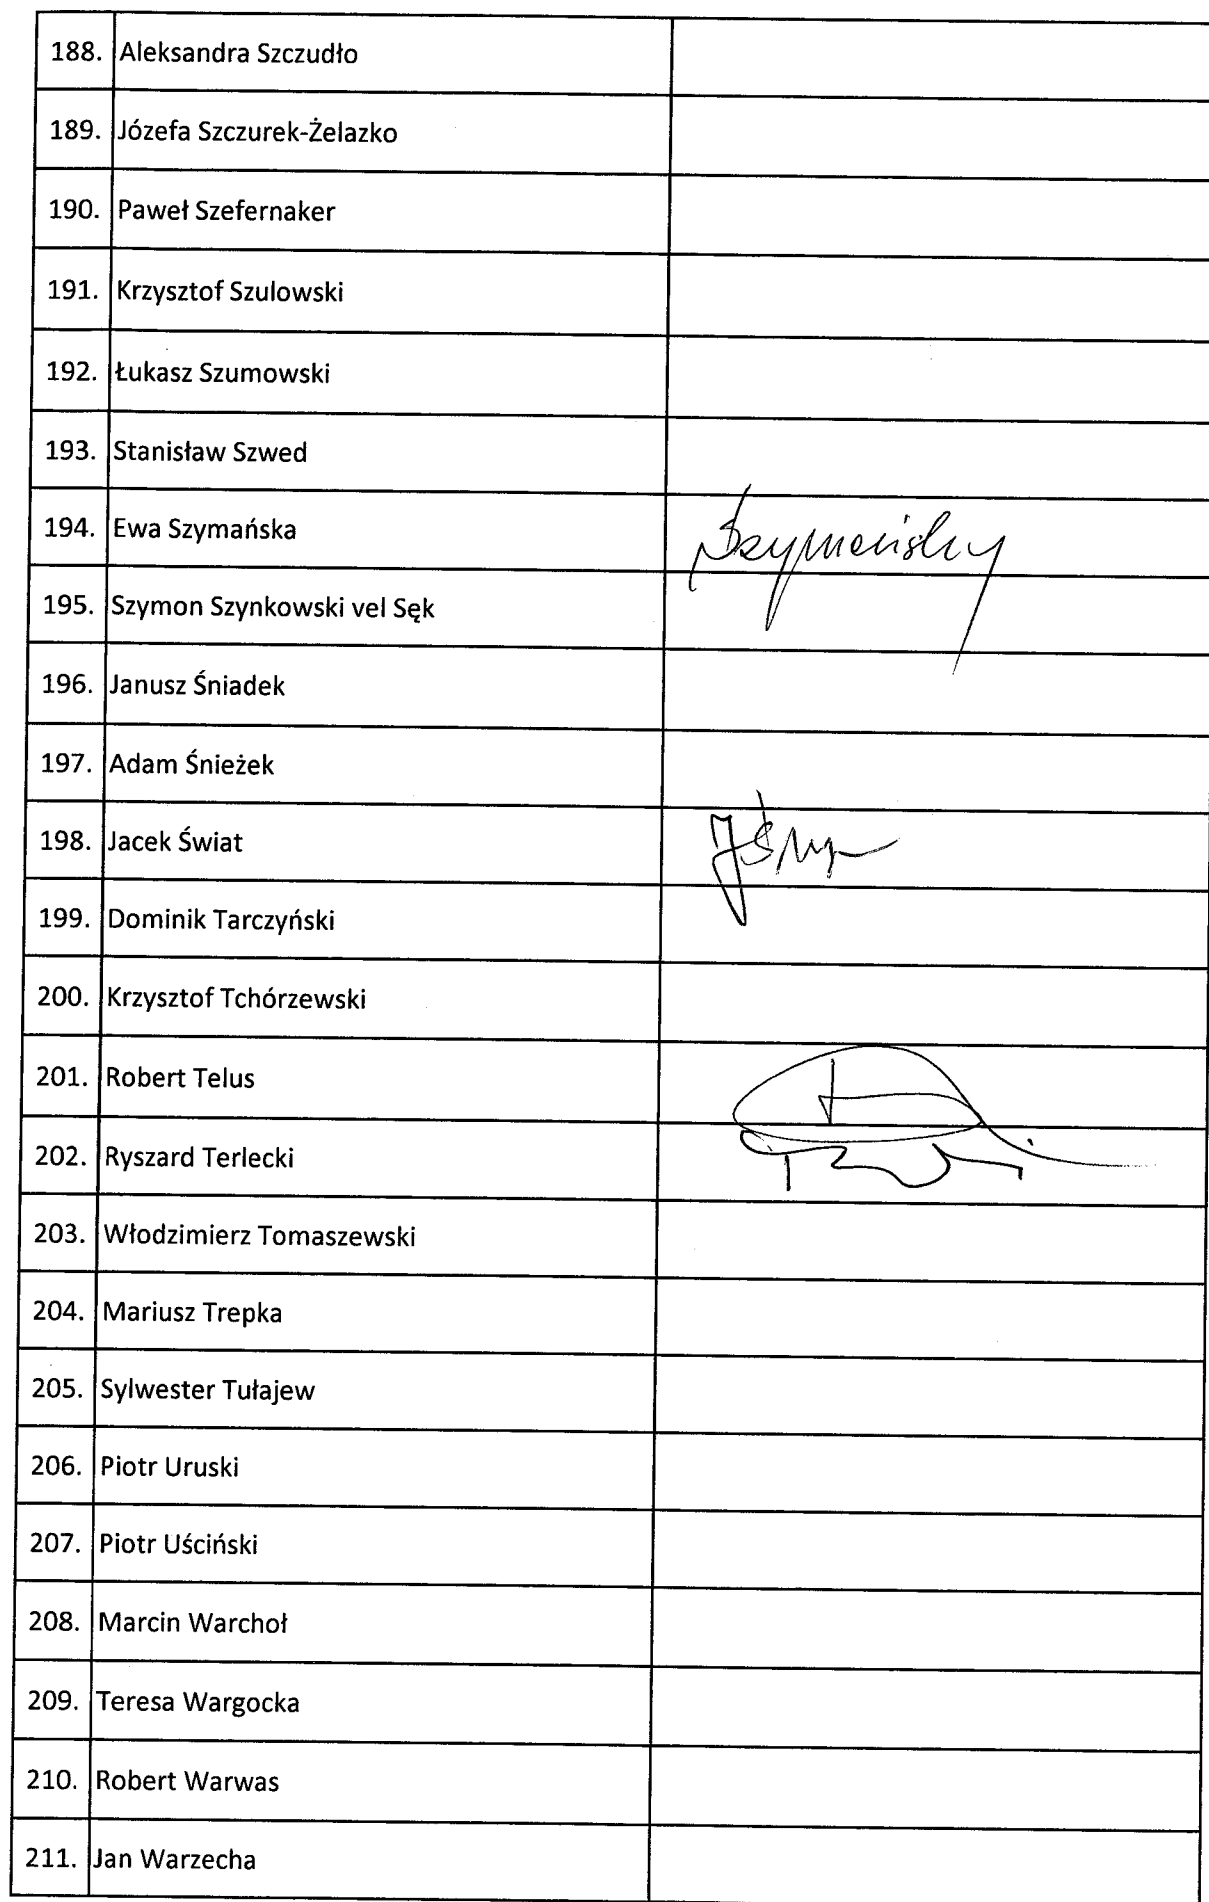 188. Aleksandra Szczudło
189. Józefa Szczurek-Żelazko
190. Paweł Szefernaker
191. Krzysztof Szulowski
192. Łukasz Szumowski
193. Stanisław Szwed
194. Ewa Szymańska
195. Szymon Szynkowski vel Sęk
196. Janusz Śniadek
197. Adam Śnieżek
198. Jacek Świat
199. Dominik Tarczyński
200. Krzysztof Tchórzewski
201. Robert Telus
202. Ryszard Terlecki
203. Włodzimierz Tomaszewski
204. Mariusz Trepka
205. Sylwester Tułajew
206. Piotr Uruski
207. Piotr Uściński
208. Marcin Warchoł
209. Teresa Wargocka
210. Robert Warwas
211. Jan Warzecha